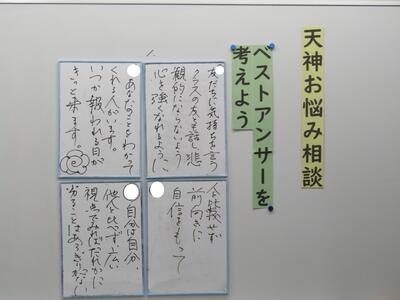 天神お悩み相談
ベストアンサーを
考えよう
友だちに気持ちを言う
クラスの友とも話し、悲
観的にならないように
心を強くなれるように、
あなたのことをわかって
くれる人がいます。
いつか報われる日が
きっと来ます。
人と比較せず
前向きに
自信をもって
自分は自分、
他人と比べず広い
視点でみればだれかに
劣ることはあ